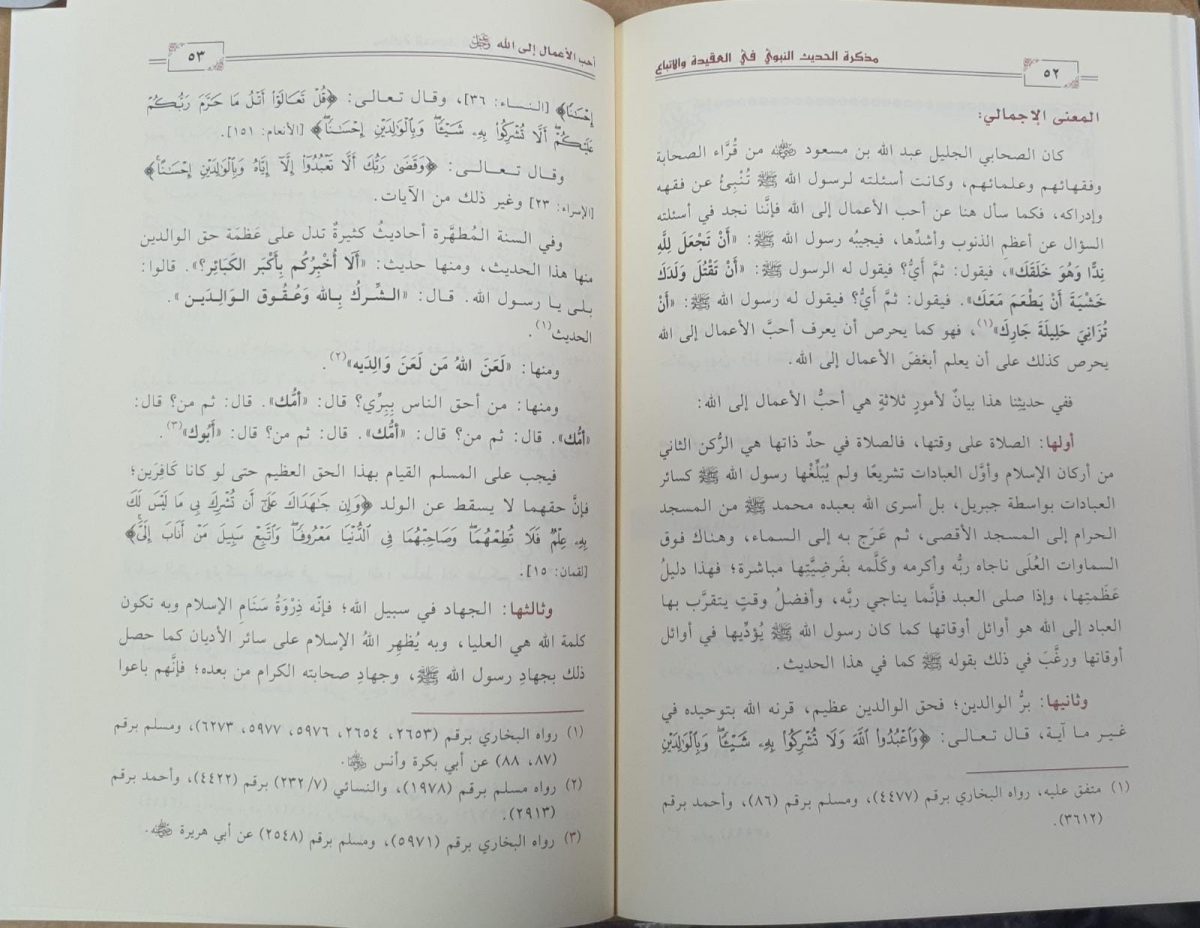 مذكرة الحديث النبوي في العقيدة والاتباع
٥٢
المعنى الإجمالي:
كان الصحابي الجليل عبد الله بن مسعود رضي الله عنه من قُرَّاء الصحابة
وفقهائهم وعلمائهم، وكانت أسئلته لرسول الله ﷺ تُنْبِئُ عن فقهه
وإدراكه، فكما سأل هنا عن أحب الأعمال إلى الله فإنَّنا نجد في أسئلته
السؤال عن أعظم الذنوب وأشدِّها، فيجيبُه رسول الله ﷺ: «أَنْ تَجْعَلَ لِلَّهِ
نِدًّا وَهُوَ خَلَقَكَ»، فيقول: ثمَّ أيُّ؟ فيقول له الرسول ﷺ: «أَنْ تَقْتُلَ وَلَدَكَ
خَشْيَةَ أَنْ يَطْعَمَ مَعَك». فيقول: ثم أَيُّ؟ فيقول له رسول الله ﷺ: «أَنْ
تُزَانِيَ حَلِيلَةَ جَارِكَ»(١)، فهو كما يحرص أن يعرف أحبَّ الأعمال إلى الله
يحرص كذلك على أن يعلم أبغضَ الأعمال إلى الله.
ففي حديثِنا هذا بيانٌ لأمورٍ ثلاثةٍ هي أحبُّ الأعمال إلى الله:
أولها: الصلاة على وقتها، فالصلاة في حدِّ ذاتها هي الرُّكن الثاني
من أركان الإسلام وأوَّل العبادات تشريعًا ولم يُبَلِّغْها رسول الله ﷺ كسائر
العبادات بواسطة جبريل، بل أسرى الله بعبده محمد ﷺ من المسجد
الحرام إلى المسجد الأقصى، ثم عَرَج به إلى السماء، وهناك فوق
السماوات العُلَى ناجاه ربُّه وأكرمه وكَلَّمه بفَرضِيَّتِها مباشرة؛ فهذا دليلُ
عَظَمتِها، وإذا صلى العبد فإنَّما يناجي ربَّه، وأفضلُ وقتٍ يتقرَّب بها
العباد إلى الله هو أوائل أوقاتها كما كان رسول الله ﷺ يُؤدِّيها في أوائل
أوقاتها ورغَّبَ في ذلك بقوله ﷺ كما في هذا الحديث.
وثانيها: برُّ الوالدين؛ فحق الوالدين عظيم، قرنه الله بتوحيده في
غير ما آية، قال تعالى: ﴿وَٱعْبُدُوا۟ ٱللَّهَ وَلَا تُشْرِكُوا۟ بِهِۦ شَيْـًٔا ۖ وَبِٱلْوَٰلِدَيْنِ
(١) متفق عليه، رواه البخاري برقم (٤٤٧٧)، ومسلم برقم (٨٦)، وأحمد برقم
(٣٦١٢).
أحب الأعمال إلى الله عز وجل
٥٣
إِحْسَـٰنًا﴾ [النساء: ٣٦]، وقال تعالى: ﴿قُلْ تَعَالَوْا۟ أَتْلُ مَا حَرَّمَ رَبُّكُمْ
عَلَيْكُمْ ۖ أَلَّا تُشْرِكُوا۟ بِهِۦ شَيْـًٔا ۖ وَبِٱلْوَٰلِدَيْنِ إِحْسَـٰنًا﴾ [الأنعام: ١٥١].
وقال تعالى: ﴿وَقَضَىٰ رَبُّكَ أَلَّا تَعْبُدُوٓا۟ إِلَّآ إِيَّاهُ وَبِٱلْوَٰلِدَيْنِ إِحْسَـٰنًا﴾
[الإسراء: ٢٣] وغير ذلك من الآيات.
وفي السنة المُطهَّرة أحاديثُ كثيرةٌ تدل على عَظَمة حق الوالدين
منها هذا الحديث، ومنها حديث: «أَلَا أُخْبِرُكُم بِأَكْبَر الكَبَائِر؟». قالوا:
بلى يا رسول الله. قال: «الشِّركُ بِالله وَعُقُوق الوَالِدَين».
الحديث(١).
ومنها: «لَعَنَ اللهُ مَن لَعَنَ وَالِدَيه»(٢).
ومنها: من أحق الناس بِبِرِّي؟ قال: «أمُّك». قال: ثم من؟ قال:
«أمُّك». قال: ثم من؟ قال: «أمُّك». قال: ثم من؟ قال: «أَبُوك»(٣).
فيجب على المسلم القيام بهذا الحق العظيم حتى لو كانا كَافِرَين؛
فإنَّ حقهما لا يسقط عن الولد ﴿وَإِن جَـٰهَدَاكَ عَلَىٰٓ أَن تُشْرِكَ بِى مَا لَيْسَ لَكَ
بِهِۦ عِلْمٌ فَلَا تُطِعْهُمَا ۖ وَصَاحِبْهُمَا فِى ٱلدُّنْيَا مَعْرُوفًا ۖ وَٱتَّبِعْ سَبِيلَ مَنْ أَنَابَ إِلَىَّ﴾
[لقمان: ١٥].
وثالثها: الجهاد في سبيل الله؛ فإنَّه ذِرْوَةُ سَنَامِ الإسلام وبه تكون
كلمة الله هي العليا، وبه يُظهِر اللهُ الإسلام على سائر الأديان كما حصل
ذلك بجهادِ رسول الله ﷺ، وجهادِ صحابته الكرام من بعده؛ فإنَّهم باعوا
(١) رواه البخاري برقم (٢٦٥٣، ٢٦٥٤، ٥٩٧٦، ٥٩٧٧، ٦٢٧٣)، ومسلم برقم
(٨٧، ٨٨) عن أبي بكرة وأنس رضي الله عنهما.
(٢) رواه مسلم برقم (١٩٧٨)، والنسائي (٢٣٢/٧) برقم (٤٤٢٢)، وأحمد برقم
(٢٩١٣).
(٣) رواه البخاري برقم (٥٩٧١)، ومسلم برقم (٢٥٤٨) عن أبي هريرة رضي الله عنه.